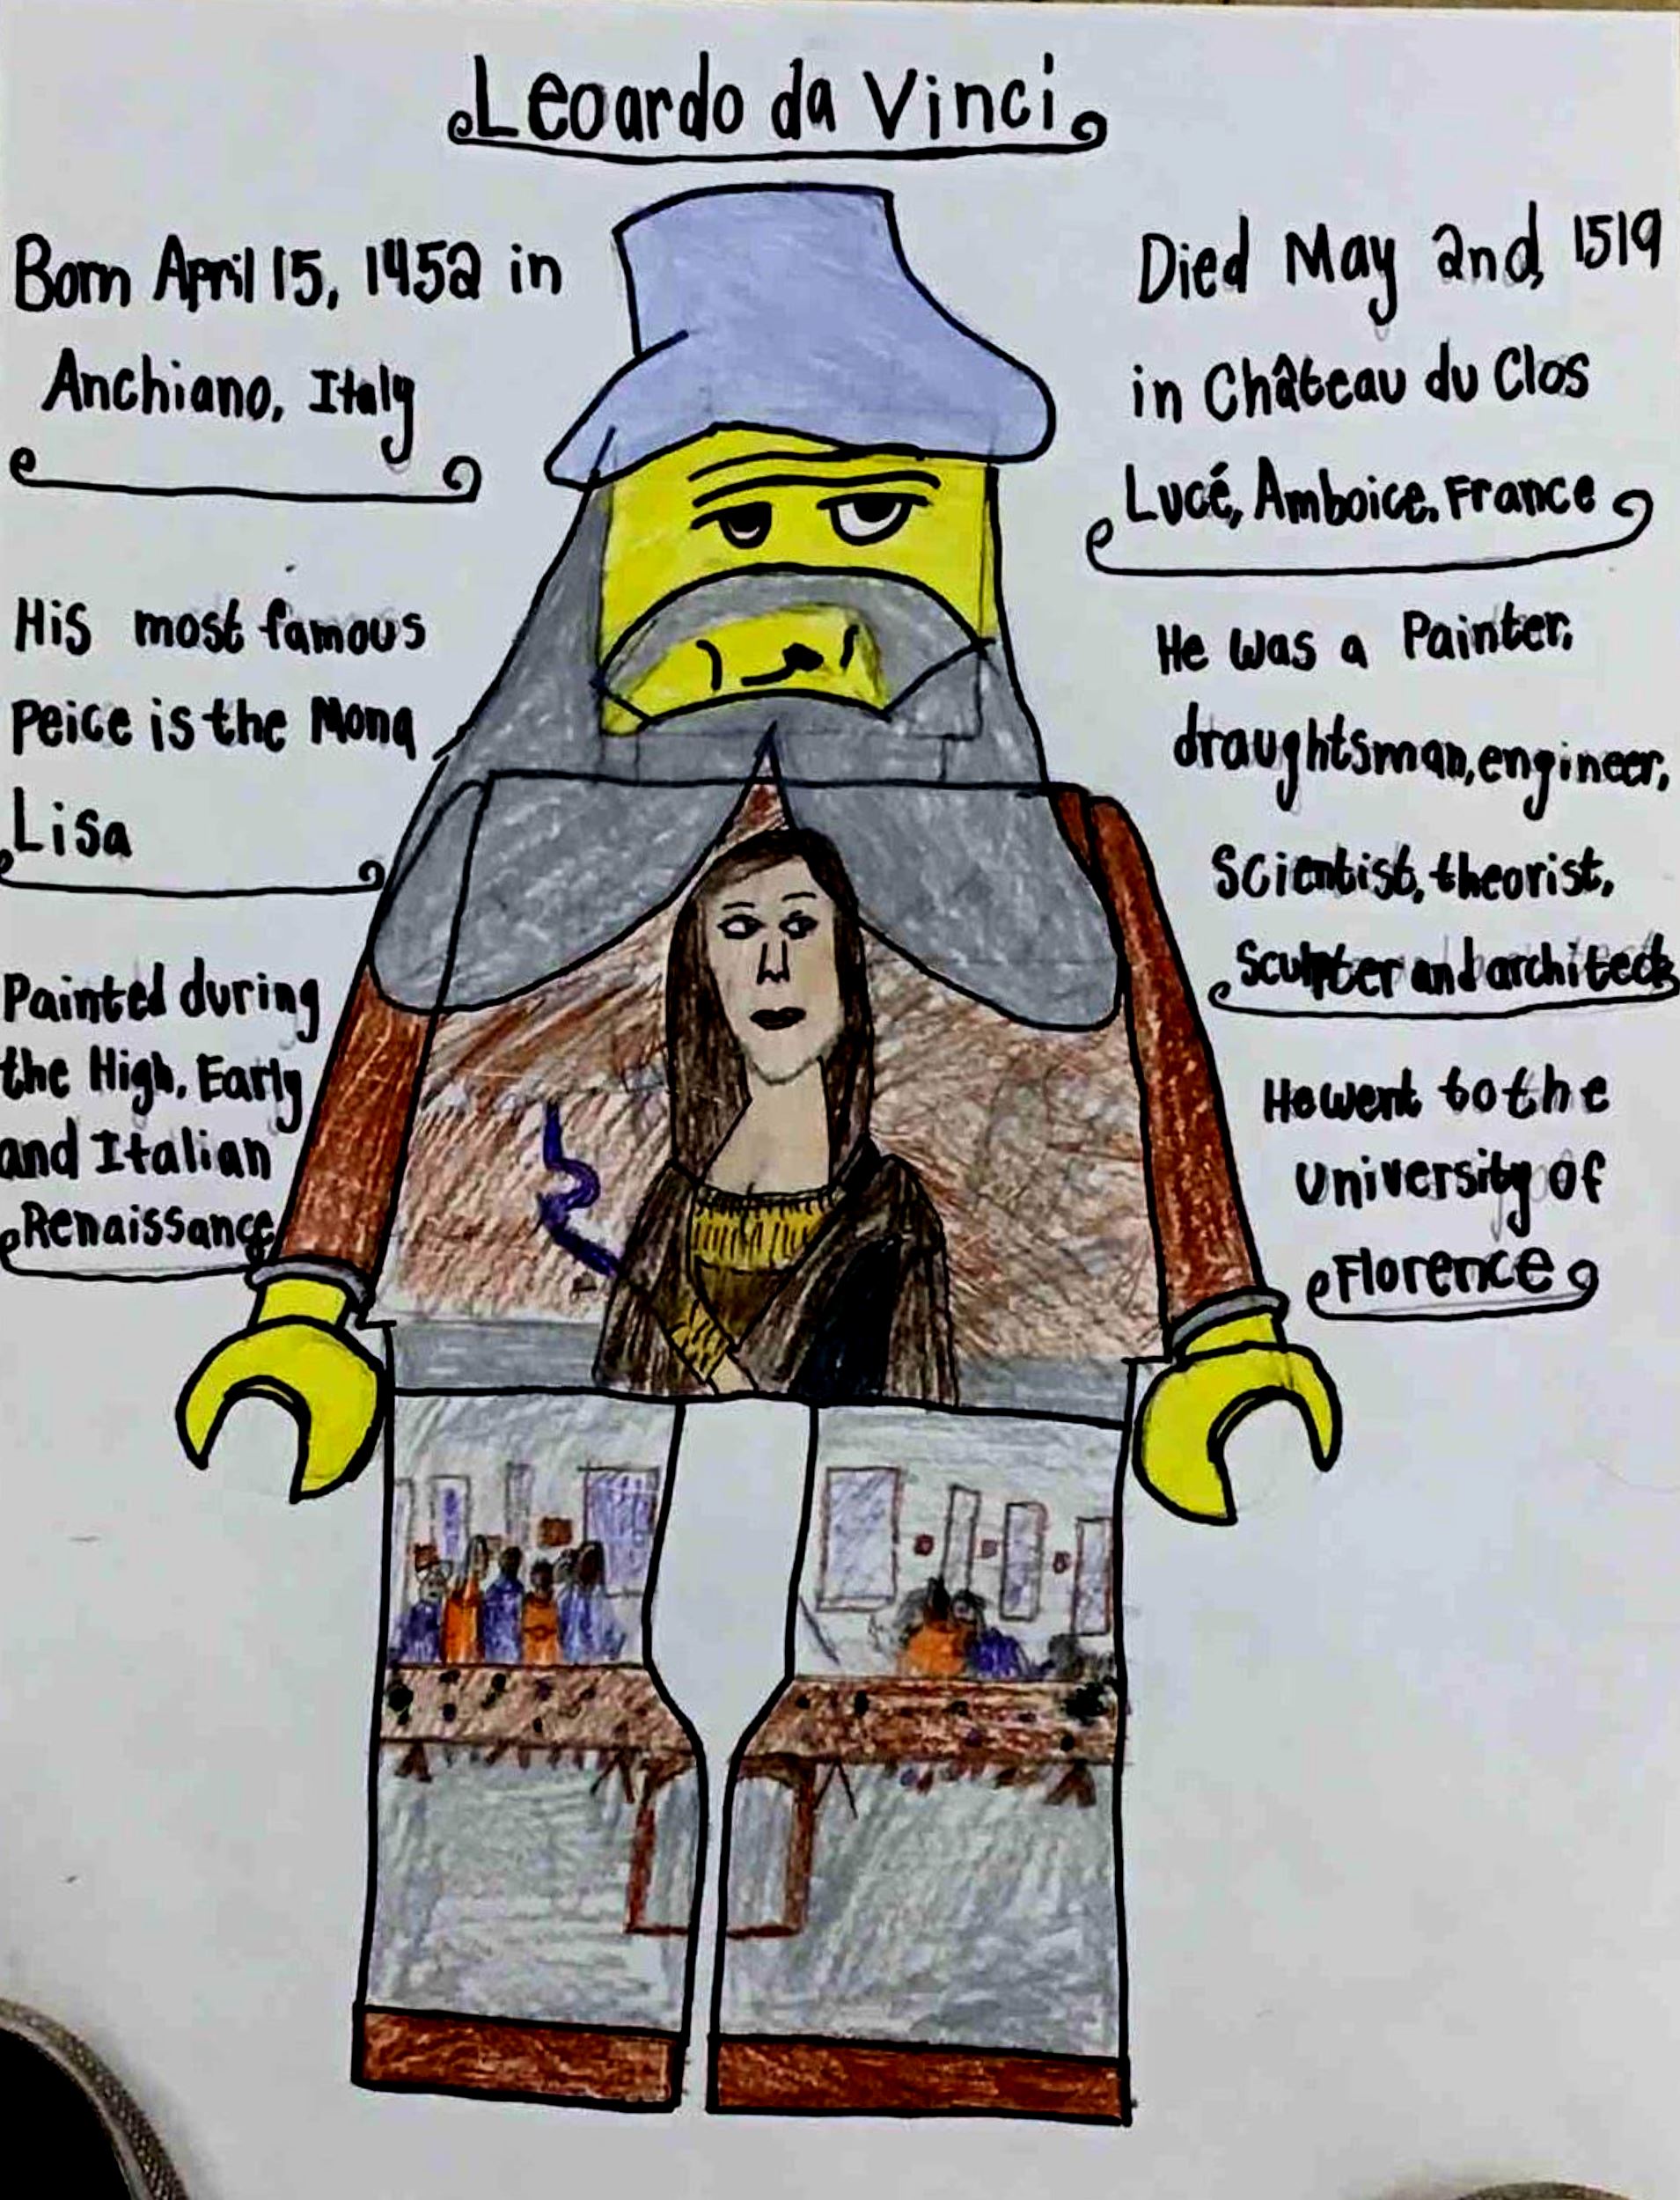 Leoardo da Vinci
Born April 15, 1452 in
Anchiano, Italy
His most famous
Peice is the Mona
Lisa
Painted during
the High, Early
and Italian
Renaissance
Died May 2nd, 1519
in Château du Clos
Lucé, Amboice, France
He was a Painter,
draughtsman, engineer,
Scientist, theorist,
Sculpter and architect
He went to the
University of
Florence